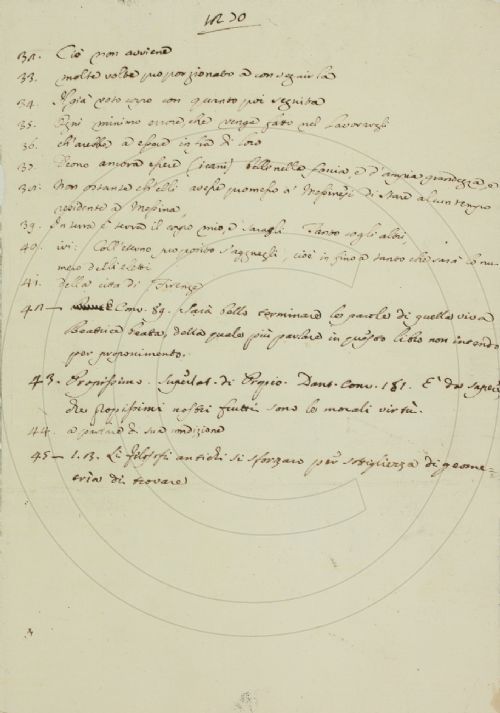 32. Ciò non avviene
33. molte volte proporzionato a conseguirla
34. Il già voto corno con quanto poi seguita
35. Ogni minimo errore che venga fatto nel lavorargli
36. ch'arebbe a essere infra di loro
37. Deono ancora essere (i cani) belli nella faccia, e d'ampia grandezza e
38. Non ostante ch'elli avesse promesso a' Messinesi di stare alcun tempo
residente a Messina
39. In terra è terra il corpo mio, e saragli Tanto cogli altri
40. ivi: Coll'eterno proposito s'agguagli, cioè in fino a tanto che sarà lo nu-
mero delli eletti
41. Della città di Firenze
42 — Conv. 89. Sarà bello terminare le parole di quella viva
Beatrice beata, della quale più parlare in questo libro non intendo
per proponimento.
43. Propissimo. superlat. di Proprio. Dant. Conv. 181. È da sapere
che propissimi nostri frutti sono le morali virtù.
44. a parlare di sua condizione
45 — 1.13. Li filosofi antichi si sforzaro per sottigliezza di geome=
tria di trovare